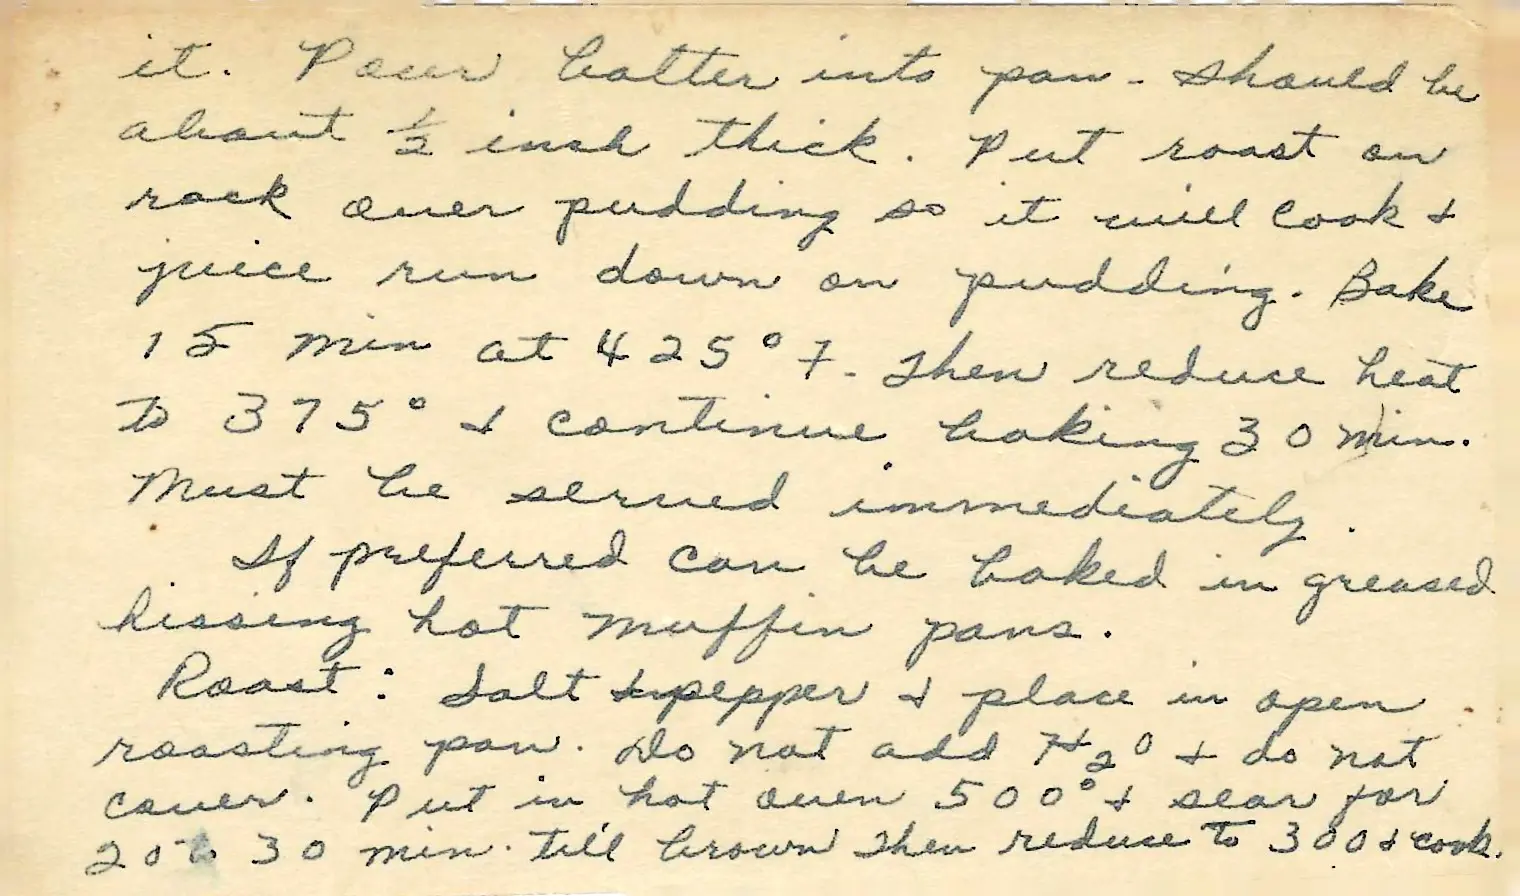 it. Pour batter into pan - should be
about ½ inch thick. Put roast on
rack over pudding so it will cook &
juice run down on pudding. Bake
15 min at 425° F. Then reduce heat
to 375° & continue baking 30 min.
Must be served immediately.
If preferred can be baked in greased
hissing hot muffin pans.
Roast: Salt & pepper & place in open
roasting pan. Do not add H₂O & do not
cover. Put in hot oven 500° & sear for
20 to 30 min. till brown then reduce to 300 & cook.